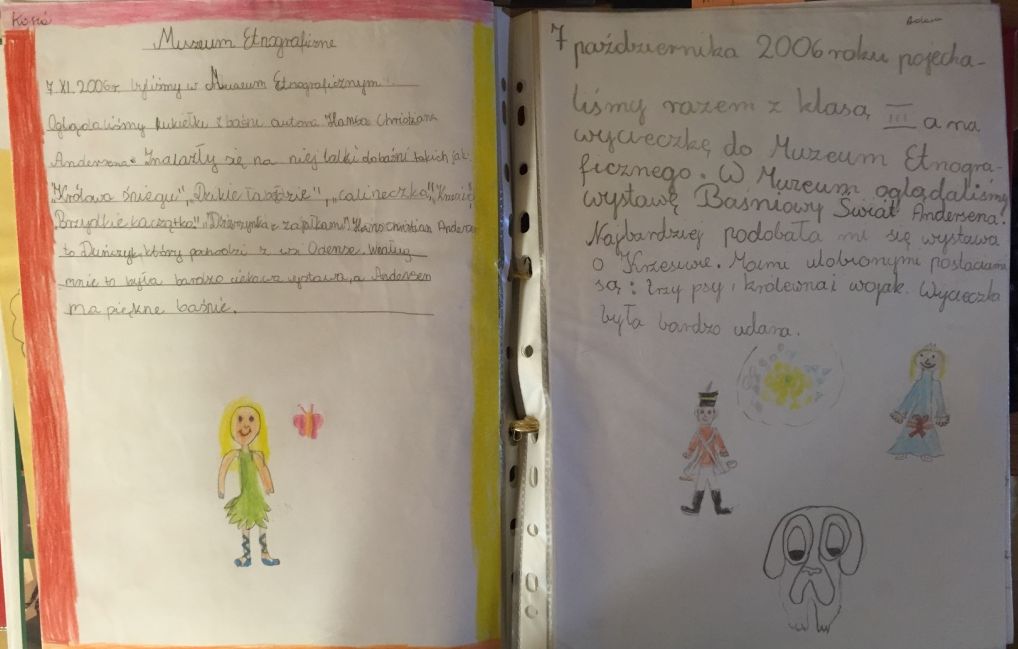 Kasia
Muzeum Etnograficzne
7 XI. 2006r. byliśmy w Muzeum Etnograficznym.
Oglądaliśmy kukiełki z baśni autora Hansa Christiana
Andersena. Znalazły się na niej lalki do baśni takich jak:
"Królowa śniegu", "Dzikie łabędzie", "calineczka",
Brzydkie kaczątko", "Dziewczynka z zapałkami". Hans Christian Andersen
to Duńczyk, który pochodzi z wsi Odense. Według
mnie to była bardzo ciekawa wystawa, a Andersen
ma piękne baśnie.
7 października 2006 roku pojecha-
liśmy razem z klasą III a na
wycieczkę do Muzeum Etnogra-
ficznego. W Muzeum oglądaliśmy
wystawę Baśniowy Świat Andersena.
Najbardziej podobała mi się wystawa
o Krzesiwie. Moimi ulubionymi postaciami
są: trzy psy, królewna i wojak. Wycieczka
była bardzo udana.